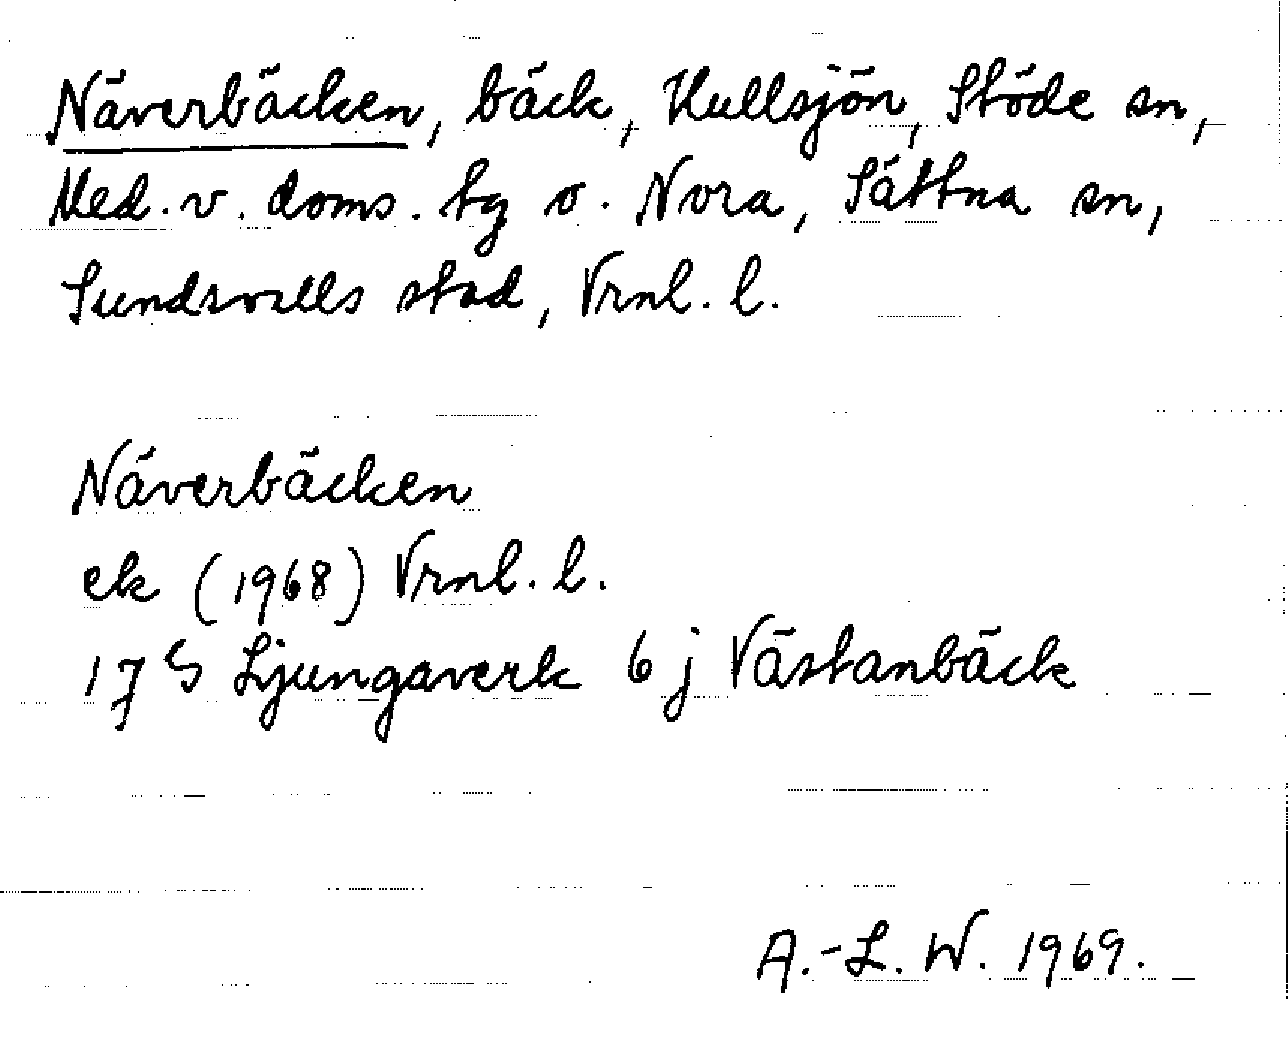 Näverbäcken, bäck, Hullsjön, Stöde sn,
Med. v. doms. tg o. Nora, Sättna sn,
Sundsvalls stad, Vrnl. l.
Näverbäcken
ek (1968) Vrnl. l.
17 S Ljungaverk 6 j Västanbäck
A.-L. W. 1969.